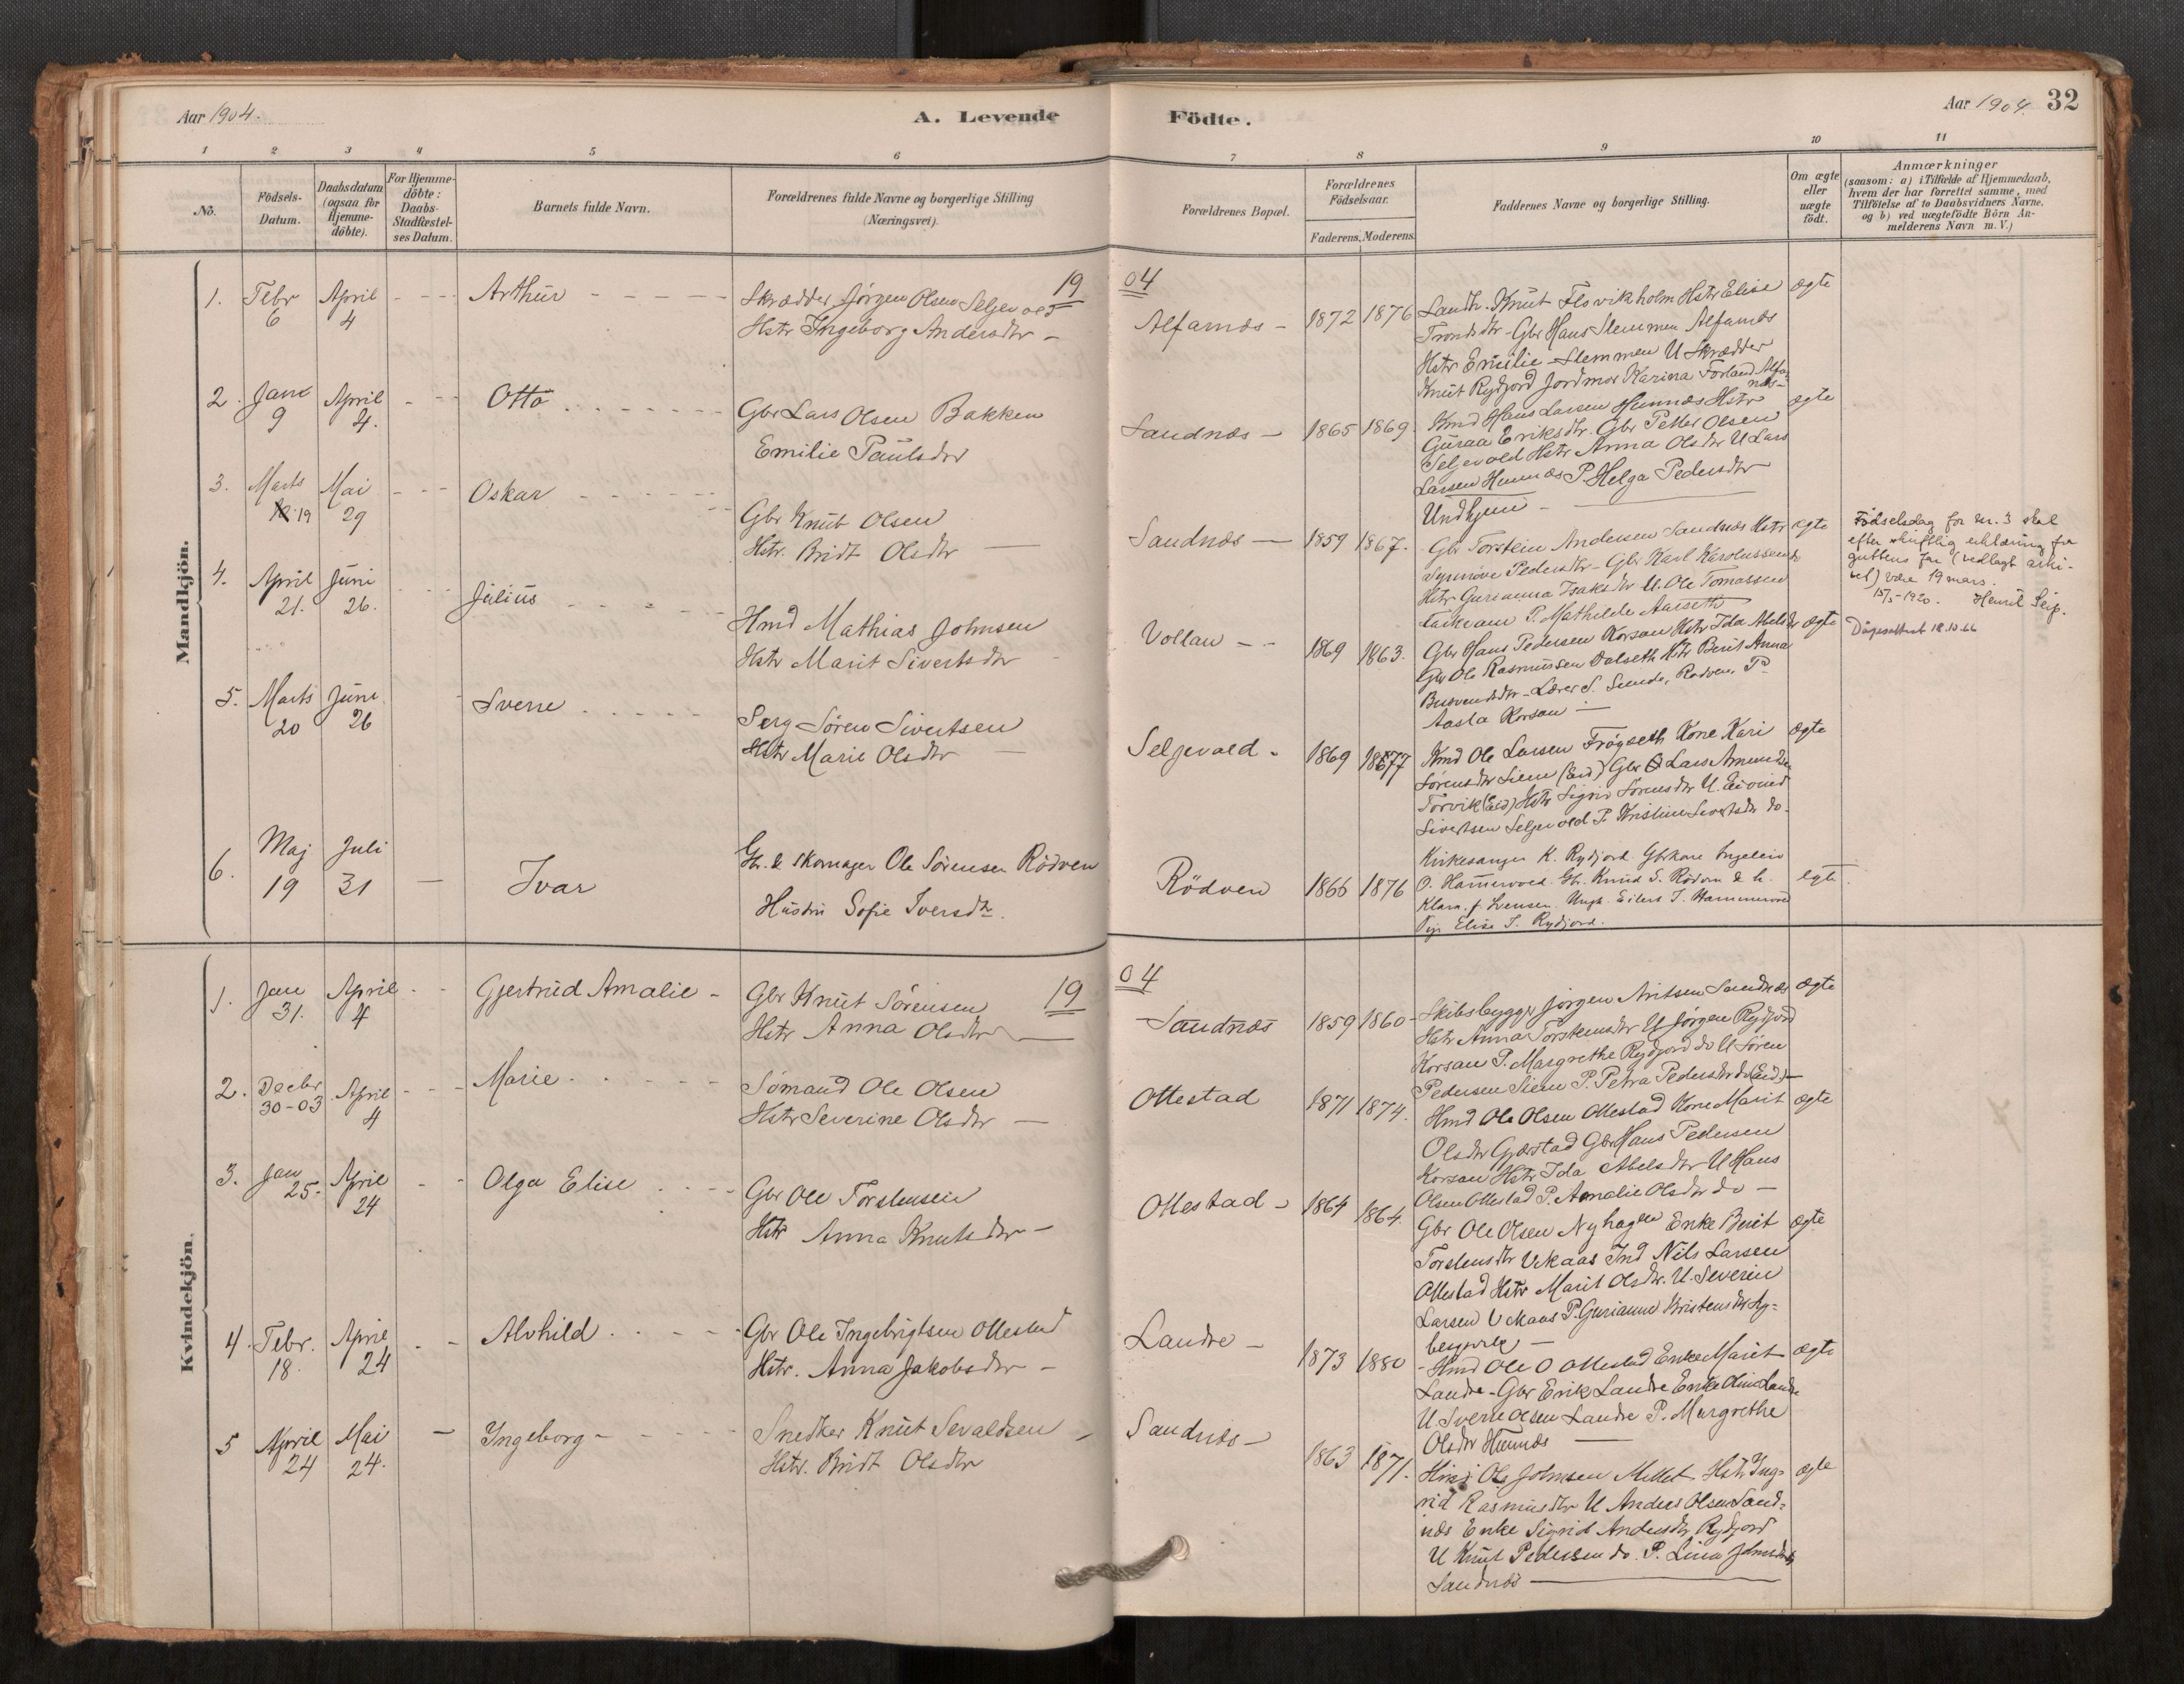 Aar 1904.
A. Levende Födte.
Aar 1904. 32
1 2 3 4 5 6 7 8 9 10 11
No.
Födsels-Datum.
Daabsdatum (ogsaa for Hjemme-döbte).
For Hjemme-döbte: Daabs-Stadfæstel-ses Datum.
Barnets fulde Navn.
Forældrenes fulde Navne og borgerlige Stilling (Næringsvei).
Forældrenes Bopæl.
Forældrenes Födselsaar.
Faderens. Moderens.
Faddernes Navne og borgerlige Stilling.
Om ægte eller uægte födt.
Anmærkninger
(saasom: a) i Tilfælde af Hjemmedaab,
hvem der har forrettet samme, med
Tilföielse af to Daabsvidners Navne,
og b) ved uægtefödte Börn An-
melderens Navn m. V.)
Mandkjön.
1904
1. Febr 6 April 4 Arthur
Skrædder Jörgen Olsen Seljevold
Hstr Ingeborg Andersdtr
Alfarnæs 1872 1876
Landh. Knut Flovikholm Hstr Elise
Trondsdtr - Gbr Hans Slemmen Alfarnæs
Hstr Emilie Slemmen U Skrædder
Knut Rydjord Jordmor Karina Forland Alfar
næs
ægte
2. Jane 9 April 4. Otto
Gbr Lars Olsen Bakken
Emilie Paulsdtr
Sandnæs 1865 1869
Kmd Hans Larsen Hunnæs Hstr
Guraa Eriksdtr. Gbr Petter Olsen
Seljevold Hstr Anna Olsdtr U Lars
Larsen Hunnæs P. Helga Pedersdtr
Undhjem
ægte
3. Marts 19 Mai 29 Oskar
Gbr Knut Olsen
Hstr. Bridt Olsdtr
Sandnæs 1859 1867.
Gbr Torstein Andersen Sandnæs Hstr
Synnöve Pedersdtr - Gbr Karl Karolussen
Hstr Gurianna Isaksdtr U. Ole Tomassen
P. Mathilde Aarseth
ægte
Födselsdag for nr. 3 skal
efter skriftlig erklæring fra
guttens far (vedlagt arki-
vet) være 19 mars.
15/5-1920. Henrik Seip.
4. April 21. Juni 26. Julius
Hmd Mathias Johnsen
Hstr Marit Sivertsdtr
Vollan 1869 1863.
Gbr Hans Pedersen Korsan Hstr Ida Abelsdtr
Gbr Ole Rasmussen Dalseth Hstr Berit Anna
Lærer S. Sunde, Rødven, P.
Aasta Korsan
ægte
Dåpsattest 18.10.66
5. Marts 20 Juni 26 Sverre
Serg Sören Sivertsen
Hstr Marie Olsdtr
Seljevold 1869 1877
Kmd Ole Larsen Frögseth Kone Kari
Sörensdtr Siem (Eid) Gbr Lars Amundsen
Torvik (Eid) Hstr Sigrid Sörensdtr U. Eivind
Sivertsen Seljevold P. Kristine Sivertsdtr do.
ægte
6. Maj 19 Juli 31 Ivar
Gbr. & Skomager Ole Sörensen Rödven
Hustru Sofie Iversdtr.
Rödven 1866 1876
Kirkesanger K. Rydjord. Gbrkone Ingeleiv
O. Hammervold. Gbr. Knud S. Rödven & h.
Klara f. Svensen. Ungk. Eilert J. Hammervold
Pige Elise J. Rydjord.
egte
Kvindekjön.
1904
1. Jan 31. April 4 Gjertrud Amalie
Gbr Knut Sörensen
Hstr Anna Olsdtr
Sandnæs 1859 1860
Skibsbygger Jörgen Antsen Sandnæs
Hstr Anna Torsteinsdtr U Jörgen Rydjord
Korsan P. Margrethe Rydjord do U Sören
Pedersen Siem P. Petra Pedersdtr do (Eid)
ægte
2. Decbr 30-03 April 4 Marie
Sömand Ole Olsen
Hstr Severine Olsdtr
Ottestad 1871 1874.
Hmd Ole Olsen Ottestad Kone Marit
Olsdtr Gjærstad Gbr Hans Pedersen
Korsan Hstr Ida Abelsdtr U Hans
Olsen Ottestad P. Amalie Olsdtr do
ægte
3. Jan 25. April 24 Olga Elise
Gbr Ole Torstensen
Hstr Anna Knutsdtr
Ottestad 1864 1864
Gbr Ole Olsen Nyhagen Enke Berit
Torstensdtr Vkaas Ind Nils Larsen
Ottestad Hstr Marit Olsdtr. U. Severin
Larsen Vkaas P. Gurianne Kristensdtr
ægte
4. Febr. 18. April 24 Alvhild
Gbr Ole Ingebrigtsen Ottestad
Hstr. Anna Jakobsdtr
Landre 1873 1880
Hmd Ole O Ottestad Enke Marit
Landre - Gbr Erik Landre Enke Oline Landre
U Sverre Olsen Landre P. Margrethe
Olsdtr Hunnæs
ægte
5 April 24 Mai 24. Ingeborg
Snedker Knut Sevaldsen
Hstr. Bridt Olsdtr
Sandnæs 1863 1871.
Ole Johnsen Mittet Hstr Ing-
rid Rasmusdtr U Anders Olsen Sand-
næs Enke Sigrid Andersdtr Rydjord
U Knut Pedersen do. P. Lina Johnsdtr
Sandnæs
ægte